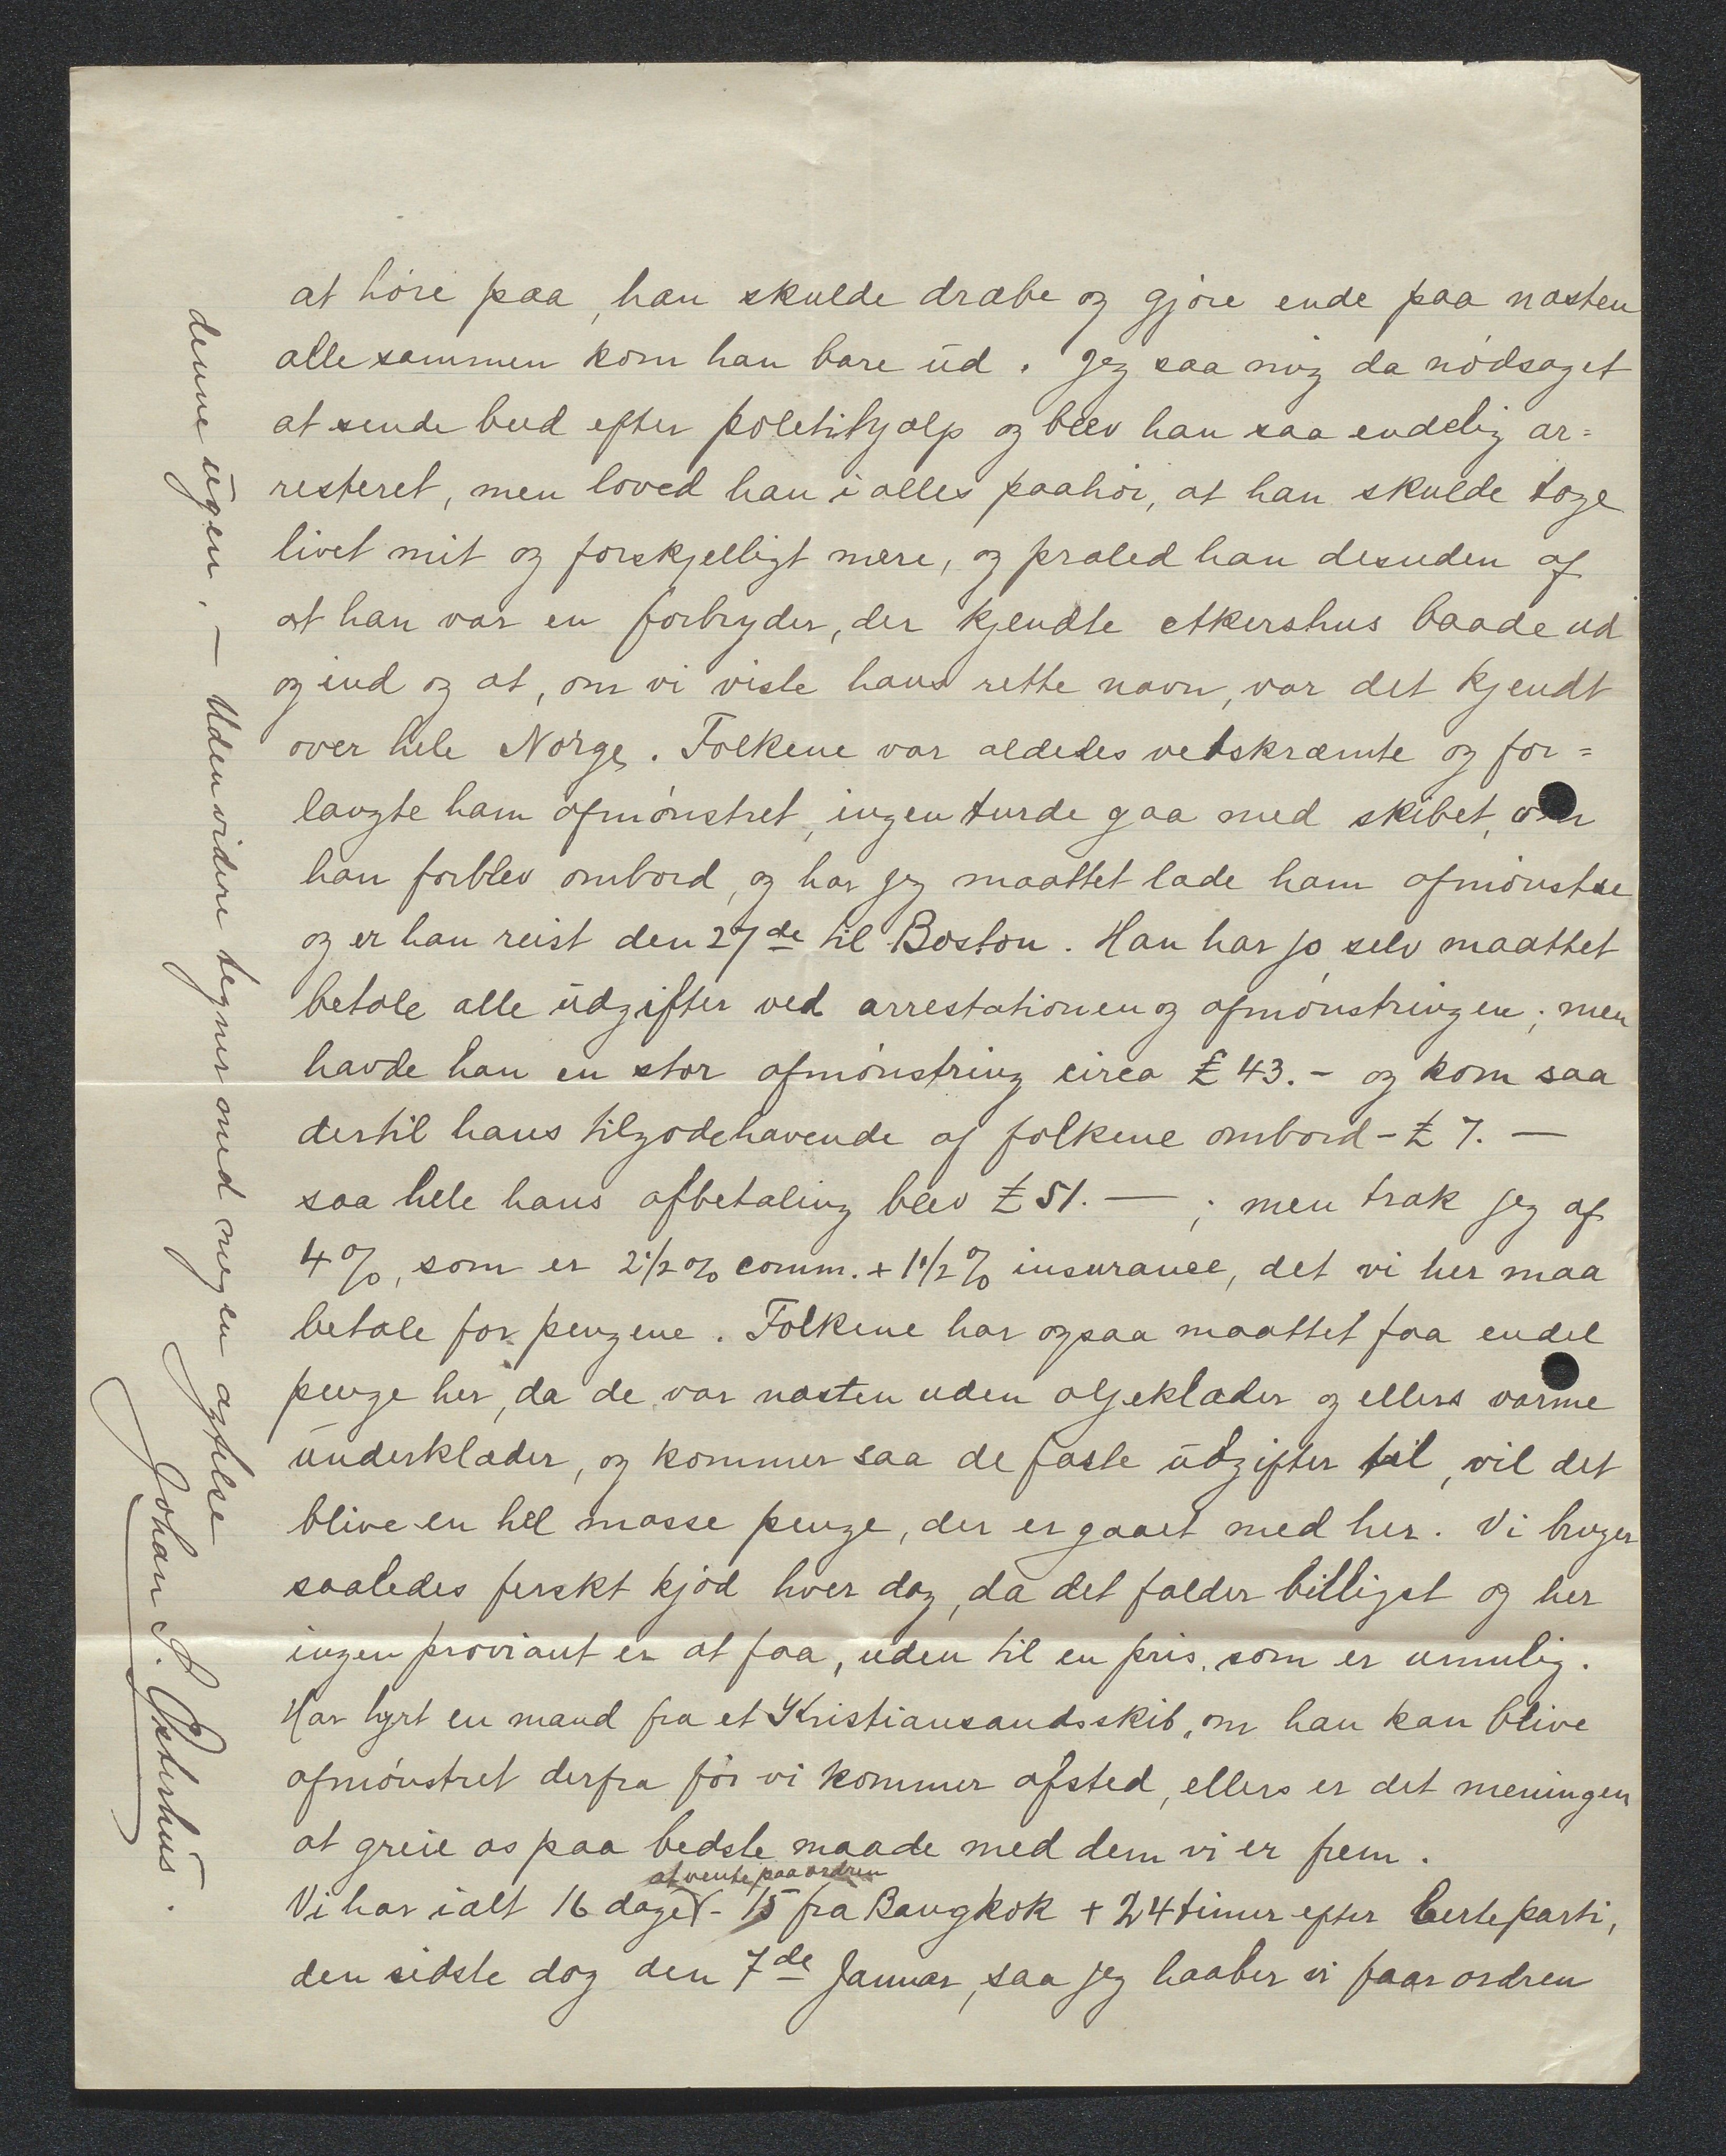 at høre paa, han skulde dræbe og gjøre ende paa næsten
allesammen kom han bare ud. Jeg saa mig da nødsaget
at sende bud efter politihjælp og blev han saa endelig ar=
resteret, men loved han i alles paahør, at han skulde tage
livet mit og forskjelligt mere, og praled han desuden af
at han var en forbryder, der kjendte Akershus baade ud
og ind og at, om vi viste hans rette navn, var det kjendt
over hele Norge. Folkene var aldeles vetskræmte og for=
langte ham afmønstret, ingen turde gaa med skibet, om
han forblev ombord, og har jeg maattet lade ham afmønstre
og er han reist den 27de til Boston. Han har jo selv maattet
betale alle udgifter ved arrestationen og afmønstringen; men
havde han en stor afmønstring circa £ 43.- og kom saa
dertil hans tilgodehavende af folkene ombord - £ 7. —
saa hele hans afbetaling blev £ 51. — ; men trak jeg af
4%, som er 2 1/2 % comm. + 1 1/2 % insurance, det vi her maa
betale for pengene. Folkene har ogsaa maattet faa endel
penge her, da de var næsten uden oljeklæder og ellers varme
underklæder, og kommer saa de faste udgifter til, vil det
blive en hel masse penge, der er gaaet med her. Vi bruger
saaledes ferskt kjød hver dag, da det falder billigst og her
ingen proviant er at faa, uden til en pris, som er umulig.
Har hyrt en mand fra et Kristiansandsskib, om han kan blive
afmønstret derfra før vi kommer afsted, ellers er det meningen
at greie os paa bedste maade med dem vi er frem.
at vente paa ordren
Vi har ialt 16 dage - 15 fra Bangkok + 24 timer efter Certeparti,
den sidste dag den 7de Januar, saa jeg haaber vi faar ordren
denne ugen. — Uden videre tegner med megen agtelse
Johan S. Osterhus.